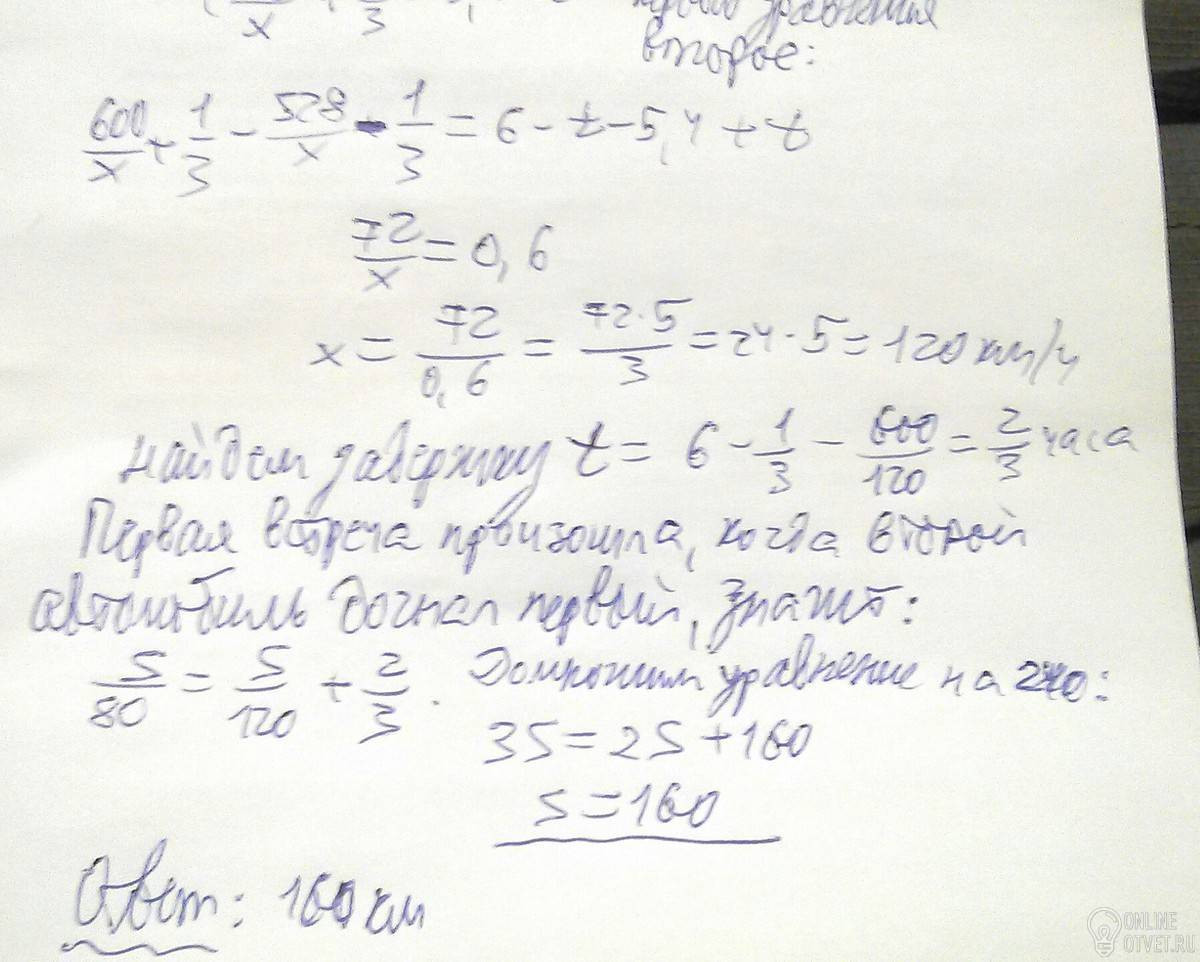 x 3
уравнения
второе:
600/x + 1/3 - 528/x - 1/3 = 6 - t - 5,4 + t
72/x = 0,6
x = 72/0,6 = 72·5/3 = 24·5 = 120 км/ч
найдем задержку t = 6 - 1/3 - 600/120 = 2/3 часа
Первая встреча произошла, когда второй
автомобиль догнал первый, значит:
S/80 = S/120 + 2/3. Домножим уравнение на 240:
3S = 2S + 160
S = 160
Ответ: 160 км
ONLINE
OTVET.RU